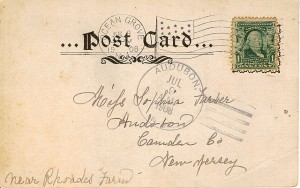 OCEAN GROVE
1908
...Post Card...
AUDUBON,
JUL
1908
Miss Sophia Farner
Audubon
Camden Co
New Jersey
near Rhoades Farm